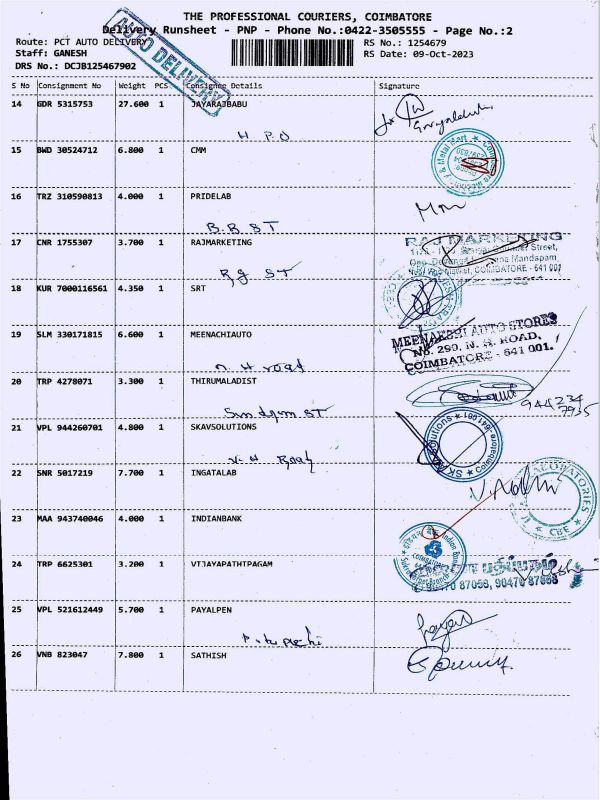 THE PROFESSIONAL COURIERS, COIMBATORE
Delivery Runsheet - PNP - Phone No.:0422-3505555 - Page No.:2
Route: PCT AUTO DELIVERY
RS No.: 1254679
Staff: GANESH
RS Date: 09-Oct-2023
DRS No.: DCJB125467902
AUTO DELIVERY
S No Consignment No Weight PCS Consignee Details Signature
14 GDR 5315753 27.600 1 JAYARAJBABU
H P O
15 BWD 30524712 6.800 1 CMM
16 TRZ 310590813 4.000 1 PRIDELAB
B.B ST
17 CNR 1755307 3.700 1 RAJMARKETING
RAJ MARKETING
Street,
Mandapam,
COIMBATORE - 641 001
Rg ST
18 KUR 7000116561 4.350 1 SRT
19 SLM 330171815 6.600 1 MEENACHIAUTO
MEENAKSHI AUTO STORES
No. 290, N. H. ROAD,
COIMBATORE - 641 001.
n H road
20 TRP 4278071 3.300 1 THIRUMALADIST
944234
7935
21 VPL 944260701 4.800 1 SKAVSOLUTIONS
SKAV Solutions * Coimbatore-641001 *
V. H Road
22 SNR 5017219 7.700 1 INGATALAB
LABORATORIES
CBE
23 MAA 943740046 4.000 1 INDIANBANK
Indian Bank
24 TRP 6625301 3.200 1 VTJAYAPATHTPAGAM
87058, 90470 87868
25 VPL 521612449 5.700 1 PAYALPEN
26 VNB 823047 7.800 1 SATHISH